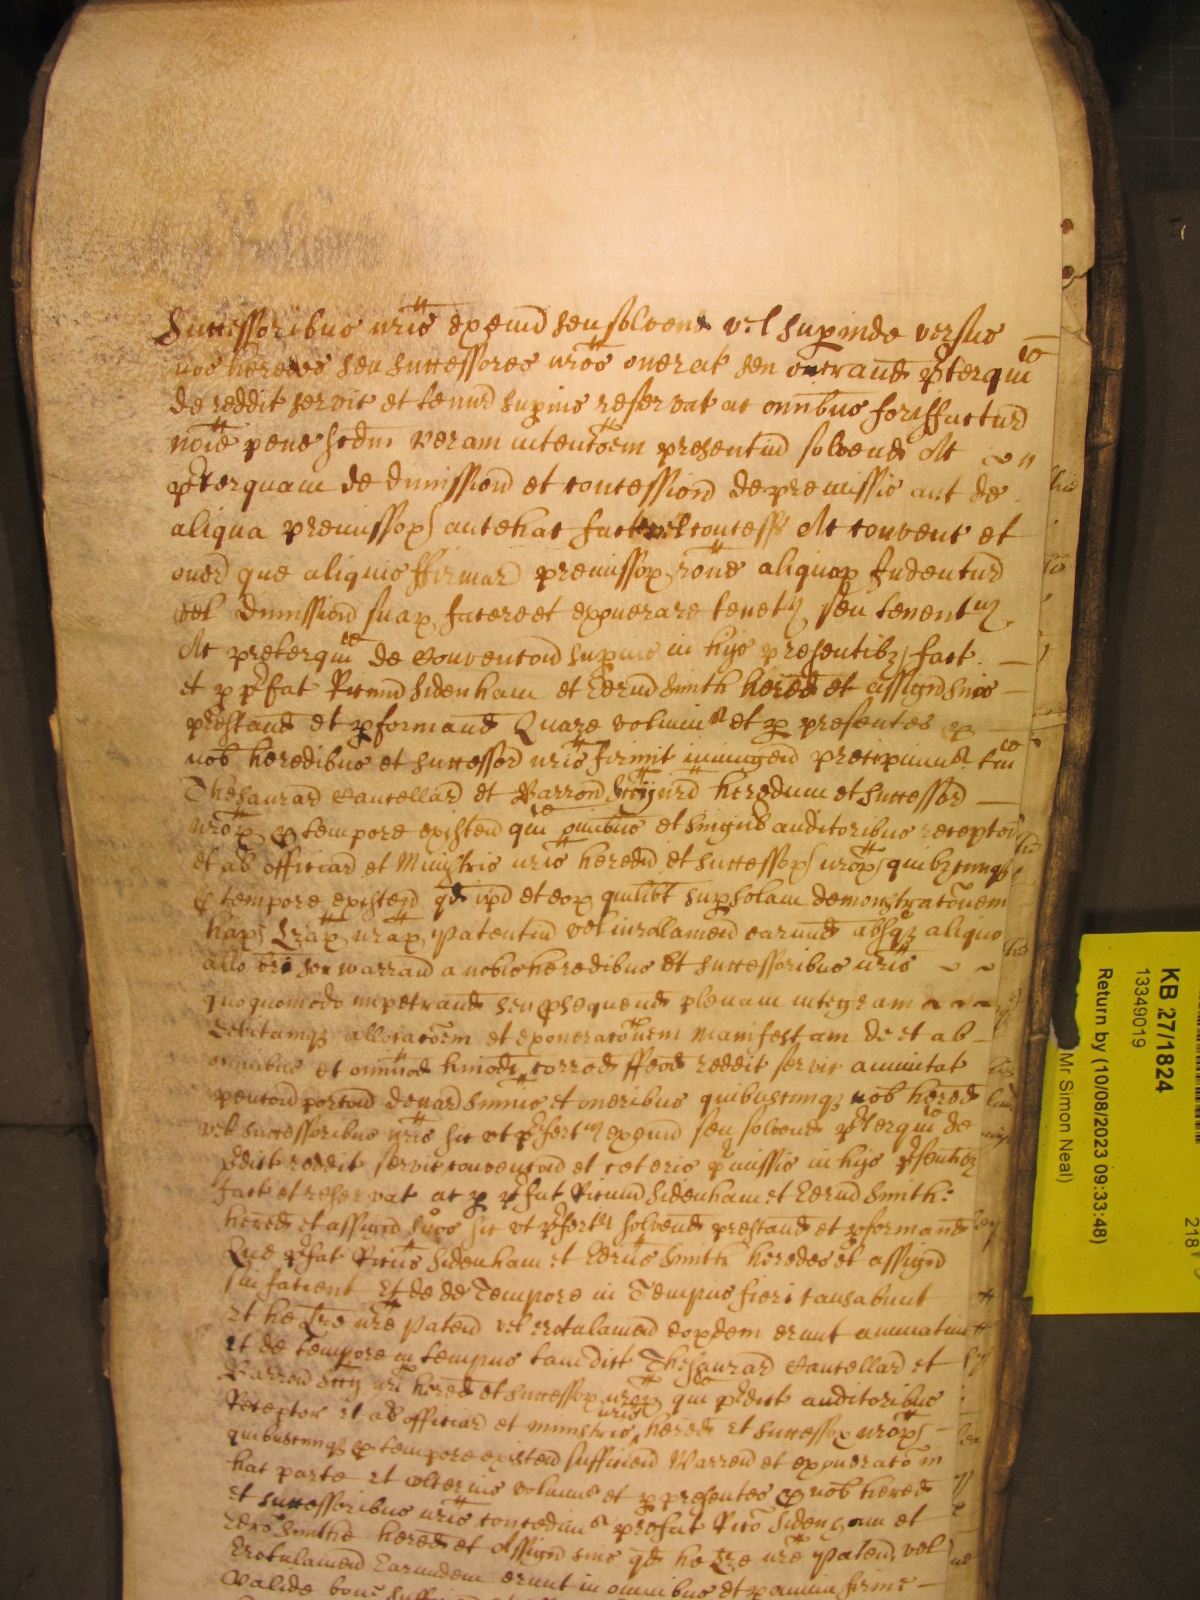 Successoribus nris exeund seu solvend vel supinde versus
nos heredes seu successores nros onerat seu onerand pterqm
de reddit servic et tenur supius reservat ac omnibus forisfactur
noie pene scdm veram intencoem presentiu solvend Ac
pterquam de dimission et concession de premissis aut de
aliqua premissor antehac fact vel concess Ac convenc et
oner que aliquis ffirmar premissor rone aliquor Indentur
vel dimission suar facere et exonerare tenetr seu tenentur
Ac preterqm de Convencon supius in hijs presentibz fact
et p pfat Ricum Sidenham et Edrum Smith hered et assign suos
prestand et pformand Quare volumus et p presentes p
nob heredibus et Successor nris firmit iniungend precipimus tam
Thesaurar Cancellar et Barron Sccij nri heredum et Successor
nror p tempore existen qm omibus et singlis auditoribus receptor
et al officiar et Ministris nris hered et Successor nror quibzcunqz
p tempore existen qd ipi et eor quilibt sup solam demonstraconem
har Lrar nrar Patentiu vel irrollamen earund absqz aliquo
allo bri seu warran a nobis heredibus et Successoribus nris
quoquomodo impetrand seu psequend plenam integram
debitamqz allocacoem et exoneraconem manifestam de et ab
omnibus et omiod hmodi corrod ffeod reddit servic annuitat
pencon porcon denar summis et oneribus quibuscunqz nob hered
vel successoribus nris sic ut pfertr exeund seu solvend pterqm de
pdict reddit servic convencon et ceteris pmissis in hijs psentibz
fact et reservat ac p pfat Ricum Sidenham et Edrum Smith
hered et assign suos sic ut pfertr solvend prestand et pformand
Que pfat Ricus Sidenham et Edrus Smith heredes et assign
sui facient Et de de Tempore in Tempus fieri causabunt
et he Lre nre Paten vel irrotulamen eordem erunt annuatim
et de tempore in tempus tam dict Thesaurar Cancellar et
Barron Sccij nri hered et successor nror qm pdict auditoribus
Receptor et al officiar et ministris nris hered et Successor nror
quibuscunqz p tempore existen sufficien Warren et exonerato in
hac parte et ulterius volumus et p presentes p nob hered
et successoribus nris concedimus prefat Rico Sidenham et
Edro Smithe hered et Assign suis qd he Lre nre Paten vel
Irrotulamen Earundem erunt in omnibus et p omnia firme
valide bone